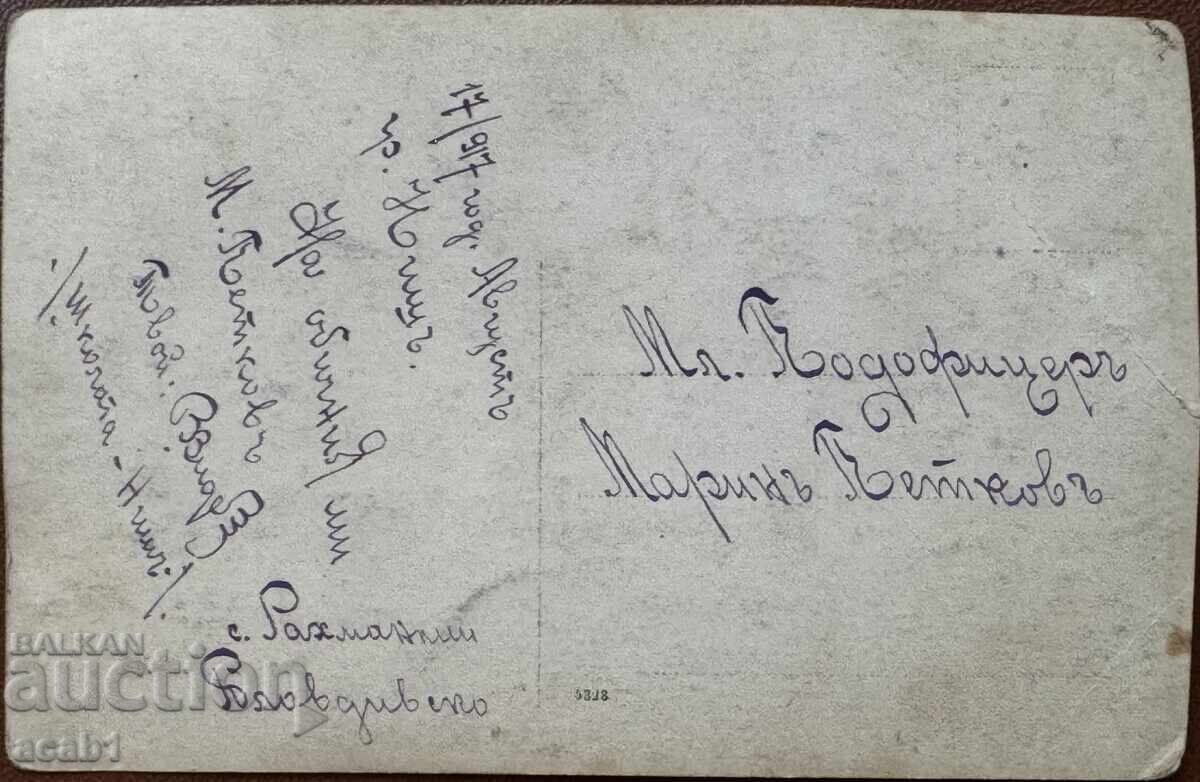 17/917 год. Августъ
гр. Нишъ.
На обичния ми
М. Петковъ
Твой:
/Щ. Нагант - Нишъ/.
с. Рахманлии
Пловдивско
Мл. Подофицеръ
Маринъ Петковъ
BALKAN
auction
acab1